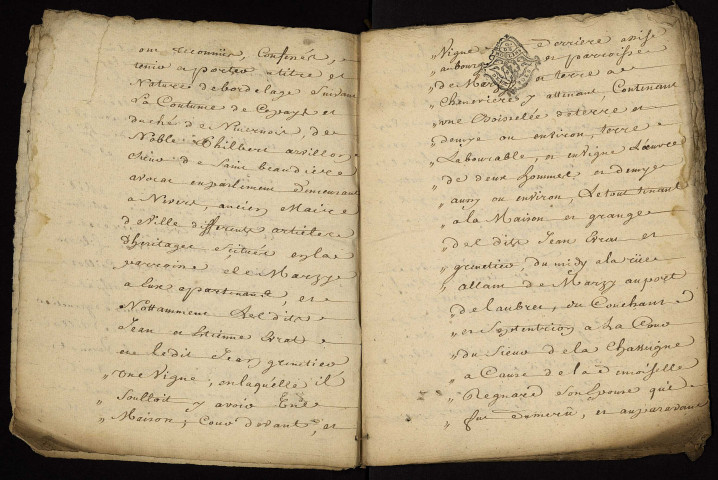 ont reconnüs, Confessés,
tenir a porter a titre et
Nature debordelage Suivant
La Coutume de Ce pays et
duché de Nivernois, de
Noble Philbert arvillon
de Saint beaudiere
avocat enparlement demeurant
a Nevers, ancien Maire
de Ville differents articles
d'heritages scitués en la
parroisse de Marzy
a Eux apartenants, et
Nottamment Lesdits
Jean et Etienne Erat
et ledit Jean grenetier
une Vigne, en laquelle il
„ Soulloit y avoir Une
„ Maison, Cour devant, et
„ Vigne derriere assise
„ aubourg et parroisse
„ de Marzy et terre a
„ Cheneviere y attenant Contenant
„ une Boisselée de terre et
„ demye ou environ, terre
„ Labourable, et en Vigne L'œuvre
„ de deux hommes et demye
„ aussy ou environ, Le tout tenant
„ a la Maison et grange
„ des dits Jean Erat et
„ grenetier, du midy a la rüe
„ allant de Marzy au port
„ de laubrey, du Couchant
„ et Septentrion a La Cour
„ du Sieur de la Chassaigne
„ a Cause de la d. moiselle
„ Regnard son Epouse qui
„ fut et auparavant